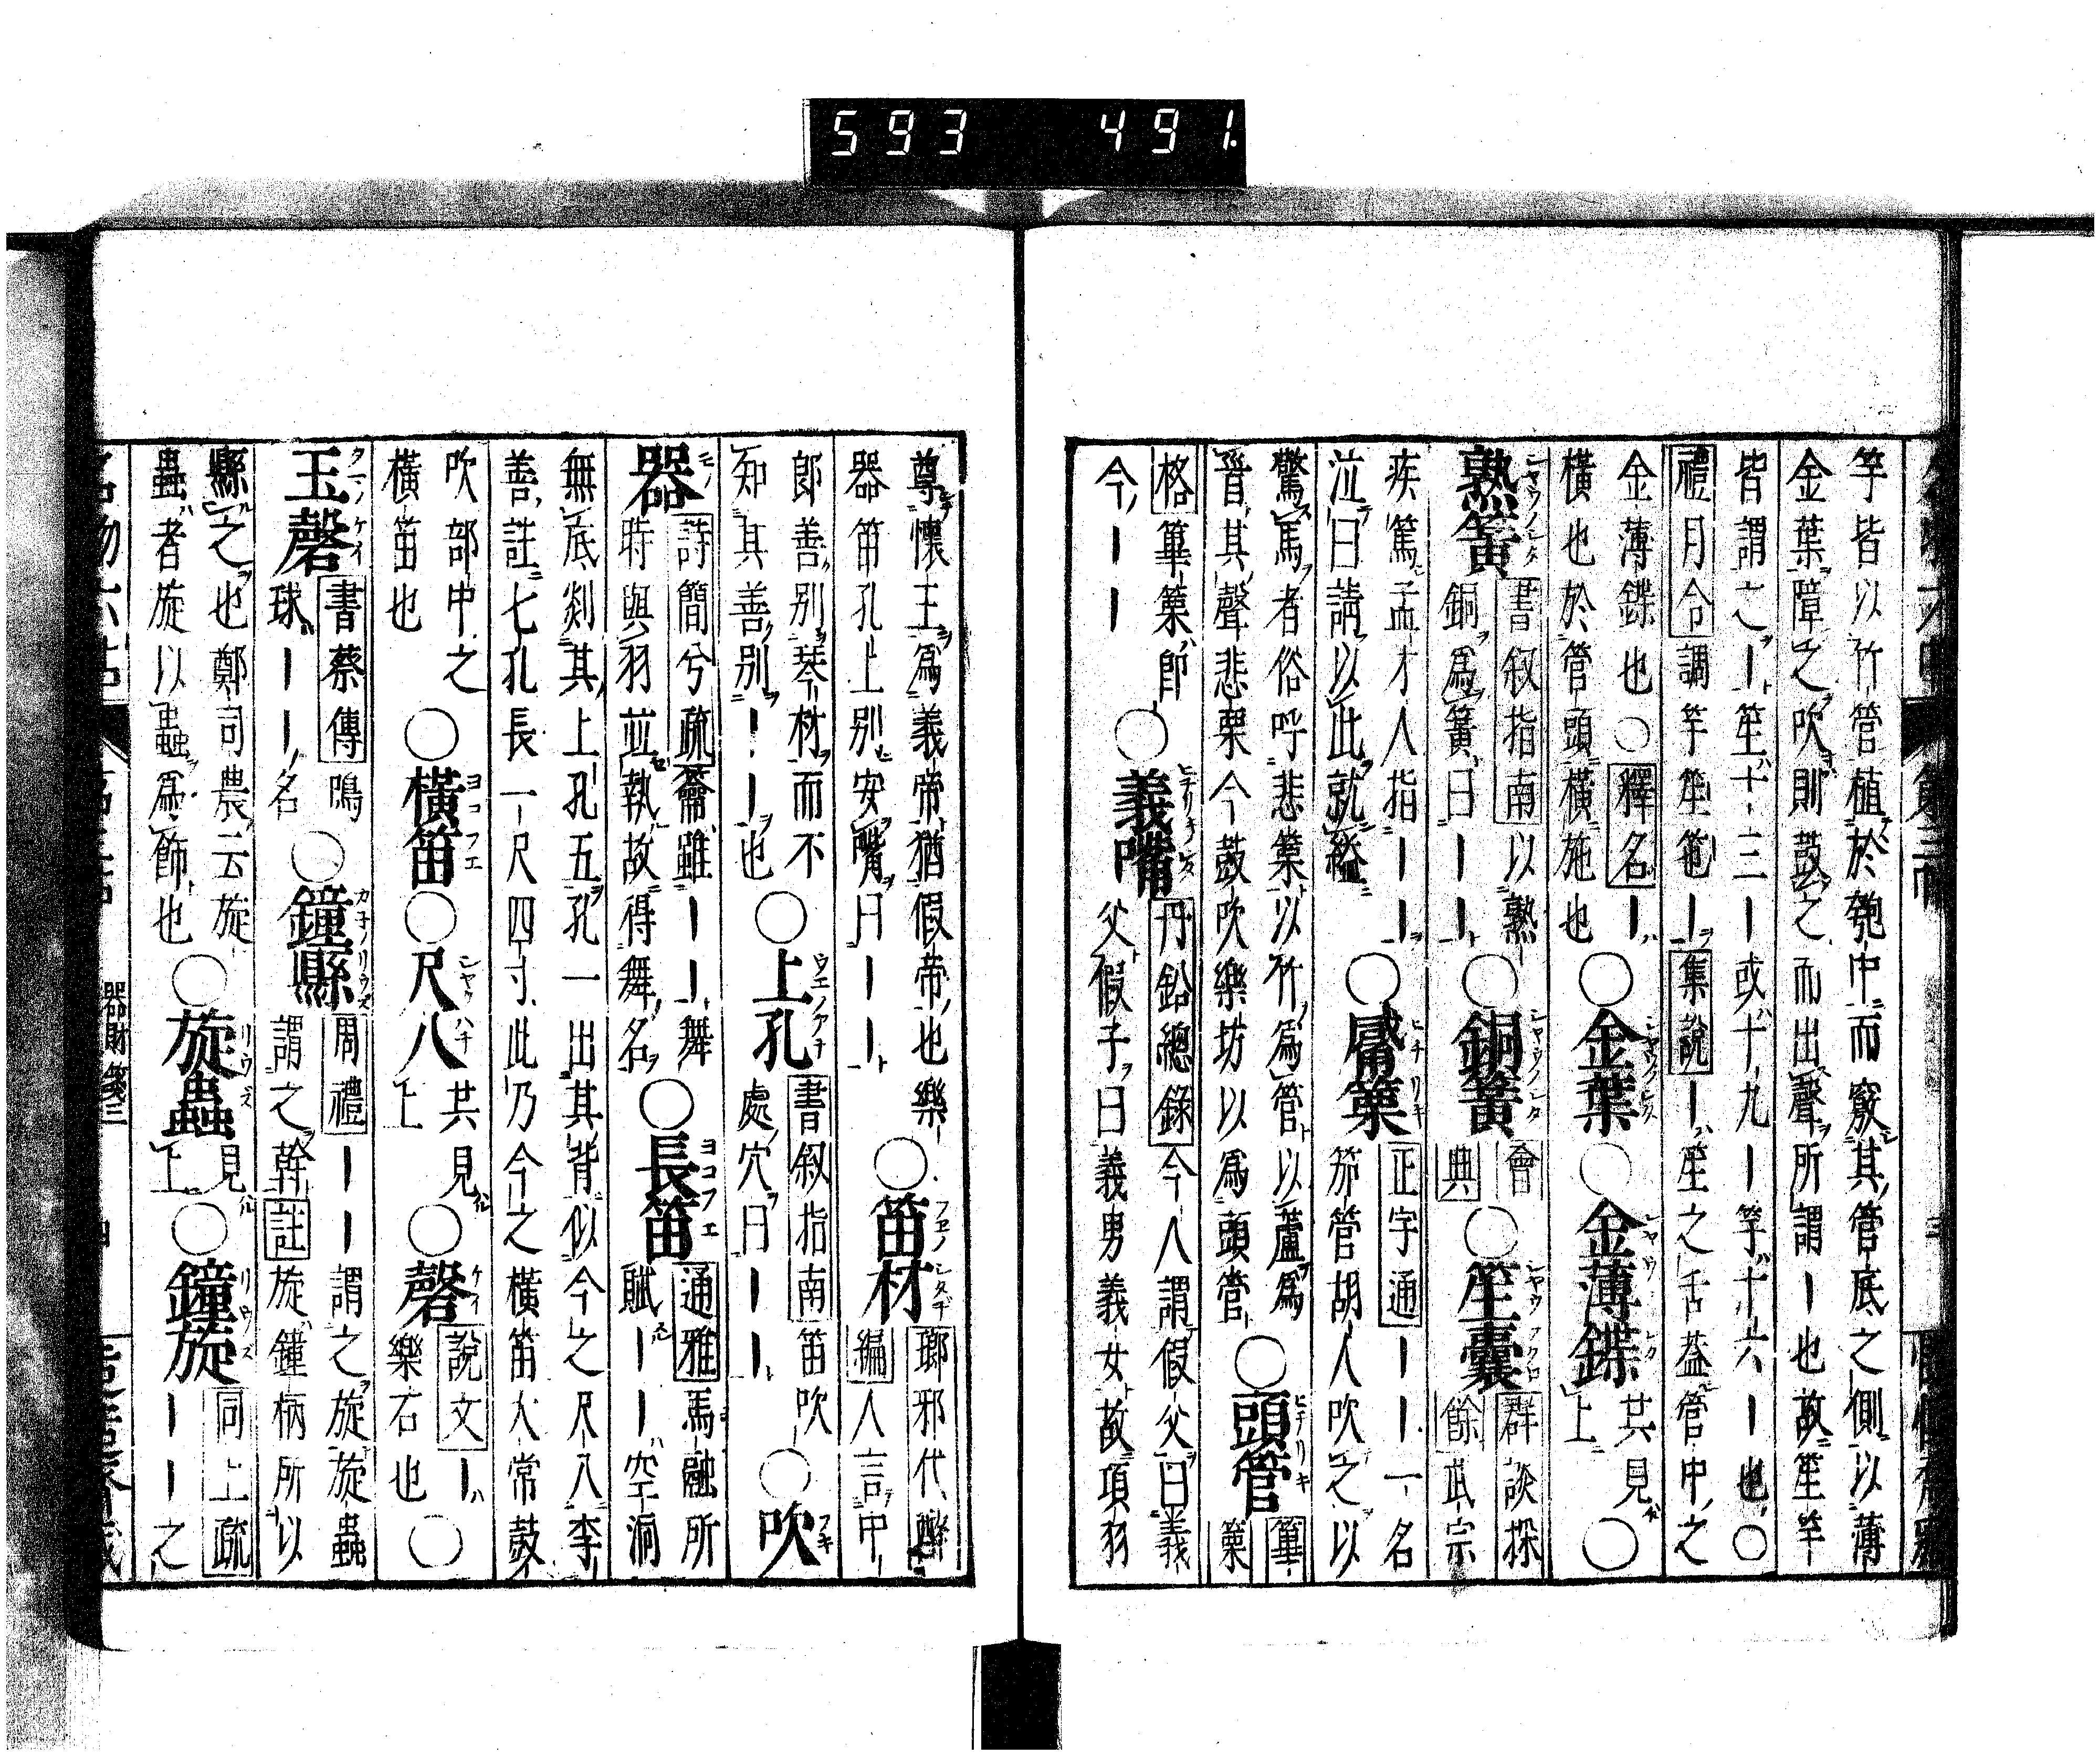 593 491.
竽皆以竹管植於匏中而竅其管底之側以薄
金葉障之吹則鼓之而出聲所謂ー也故笙竽
皆謂之ー笙十三ー或十九ー竽十六ー也○
禮月令調竽笙箎ー集說ー笙之舌葢管中之
金薄鍱也○釋名ー
橫也於管頭橫施也
○金葉○金薄鍱
共見
上
○
熟簧
書叙指南以熟
銅為簧曰ーー
○銅簧
會
典
○笙囊
群談採
餘武宗
疾篤孟才人指ーー
泣曰請以此就縊
○觱篥
正字通ーー一名
笳管胡人吹之以
驚馬者俗呼悲篥以竹為管以蘆為
晉其聲悲栗今鼓吹樂坊以為頭管
○頭管
篳
篥
格篳篥即
今ーー
○義嘴
丹鉛總錄今人謂假父曰義
父假子曰義男義女故項羽
尊懷王為義帝猶假帝也樂
器笛孔上別安嘴曰ーー
○笛材
瑯邪代醉
編人言中
郎善別琴材而不
知其善別ーー也
○上孔
書叙指南笛吹
處穴曰ーー
○吹
器
詩簡兮疏籥雖ーー舞
時與羽並執故得舞名
○長笛
通雅馬融所
賦ーー空洞
無底剡其上孔五孔一出其背似今之尺八李
善註七孔長一尺四寸此乃今之橫笛大常鼓
吹部中之
橫笛也
○橫笛○尺八
共見
上
○磬
說文ー
樂石也
○
玉磬
書蔡傳鳴
球ーー名
○鐘縣
周禮ーー謂之旋旋蟲
謂之幹註旋鐘柄所以
縣之也鄭司農云旋
蟲者旋以蟲為飾也
○旋蟲
見
上
○鐘旋
同上疏
ーー之
器財箋三